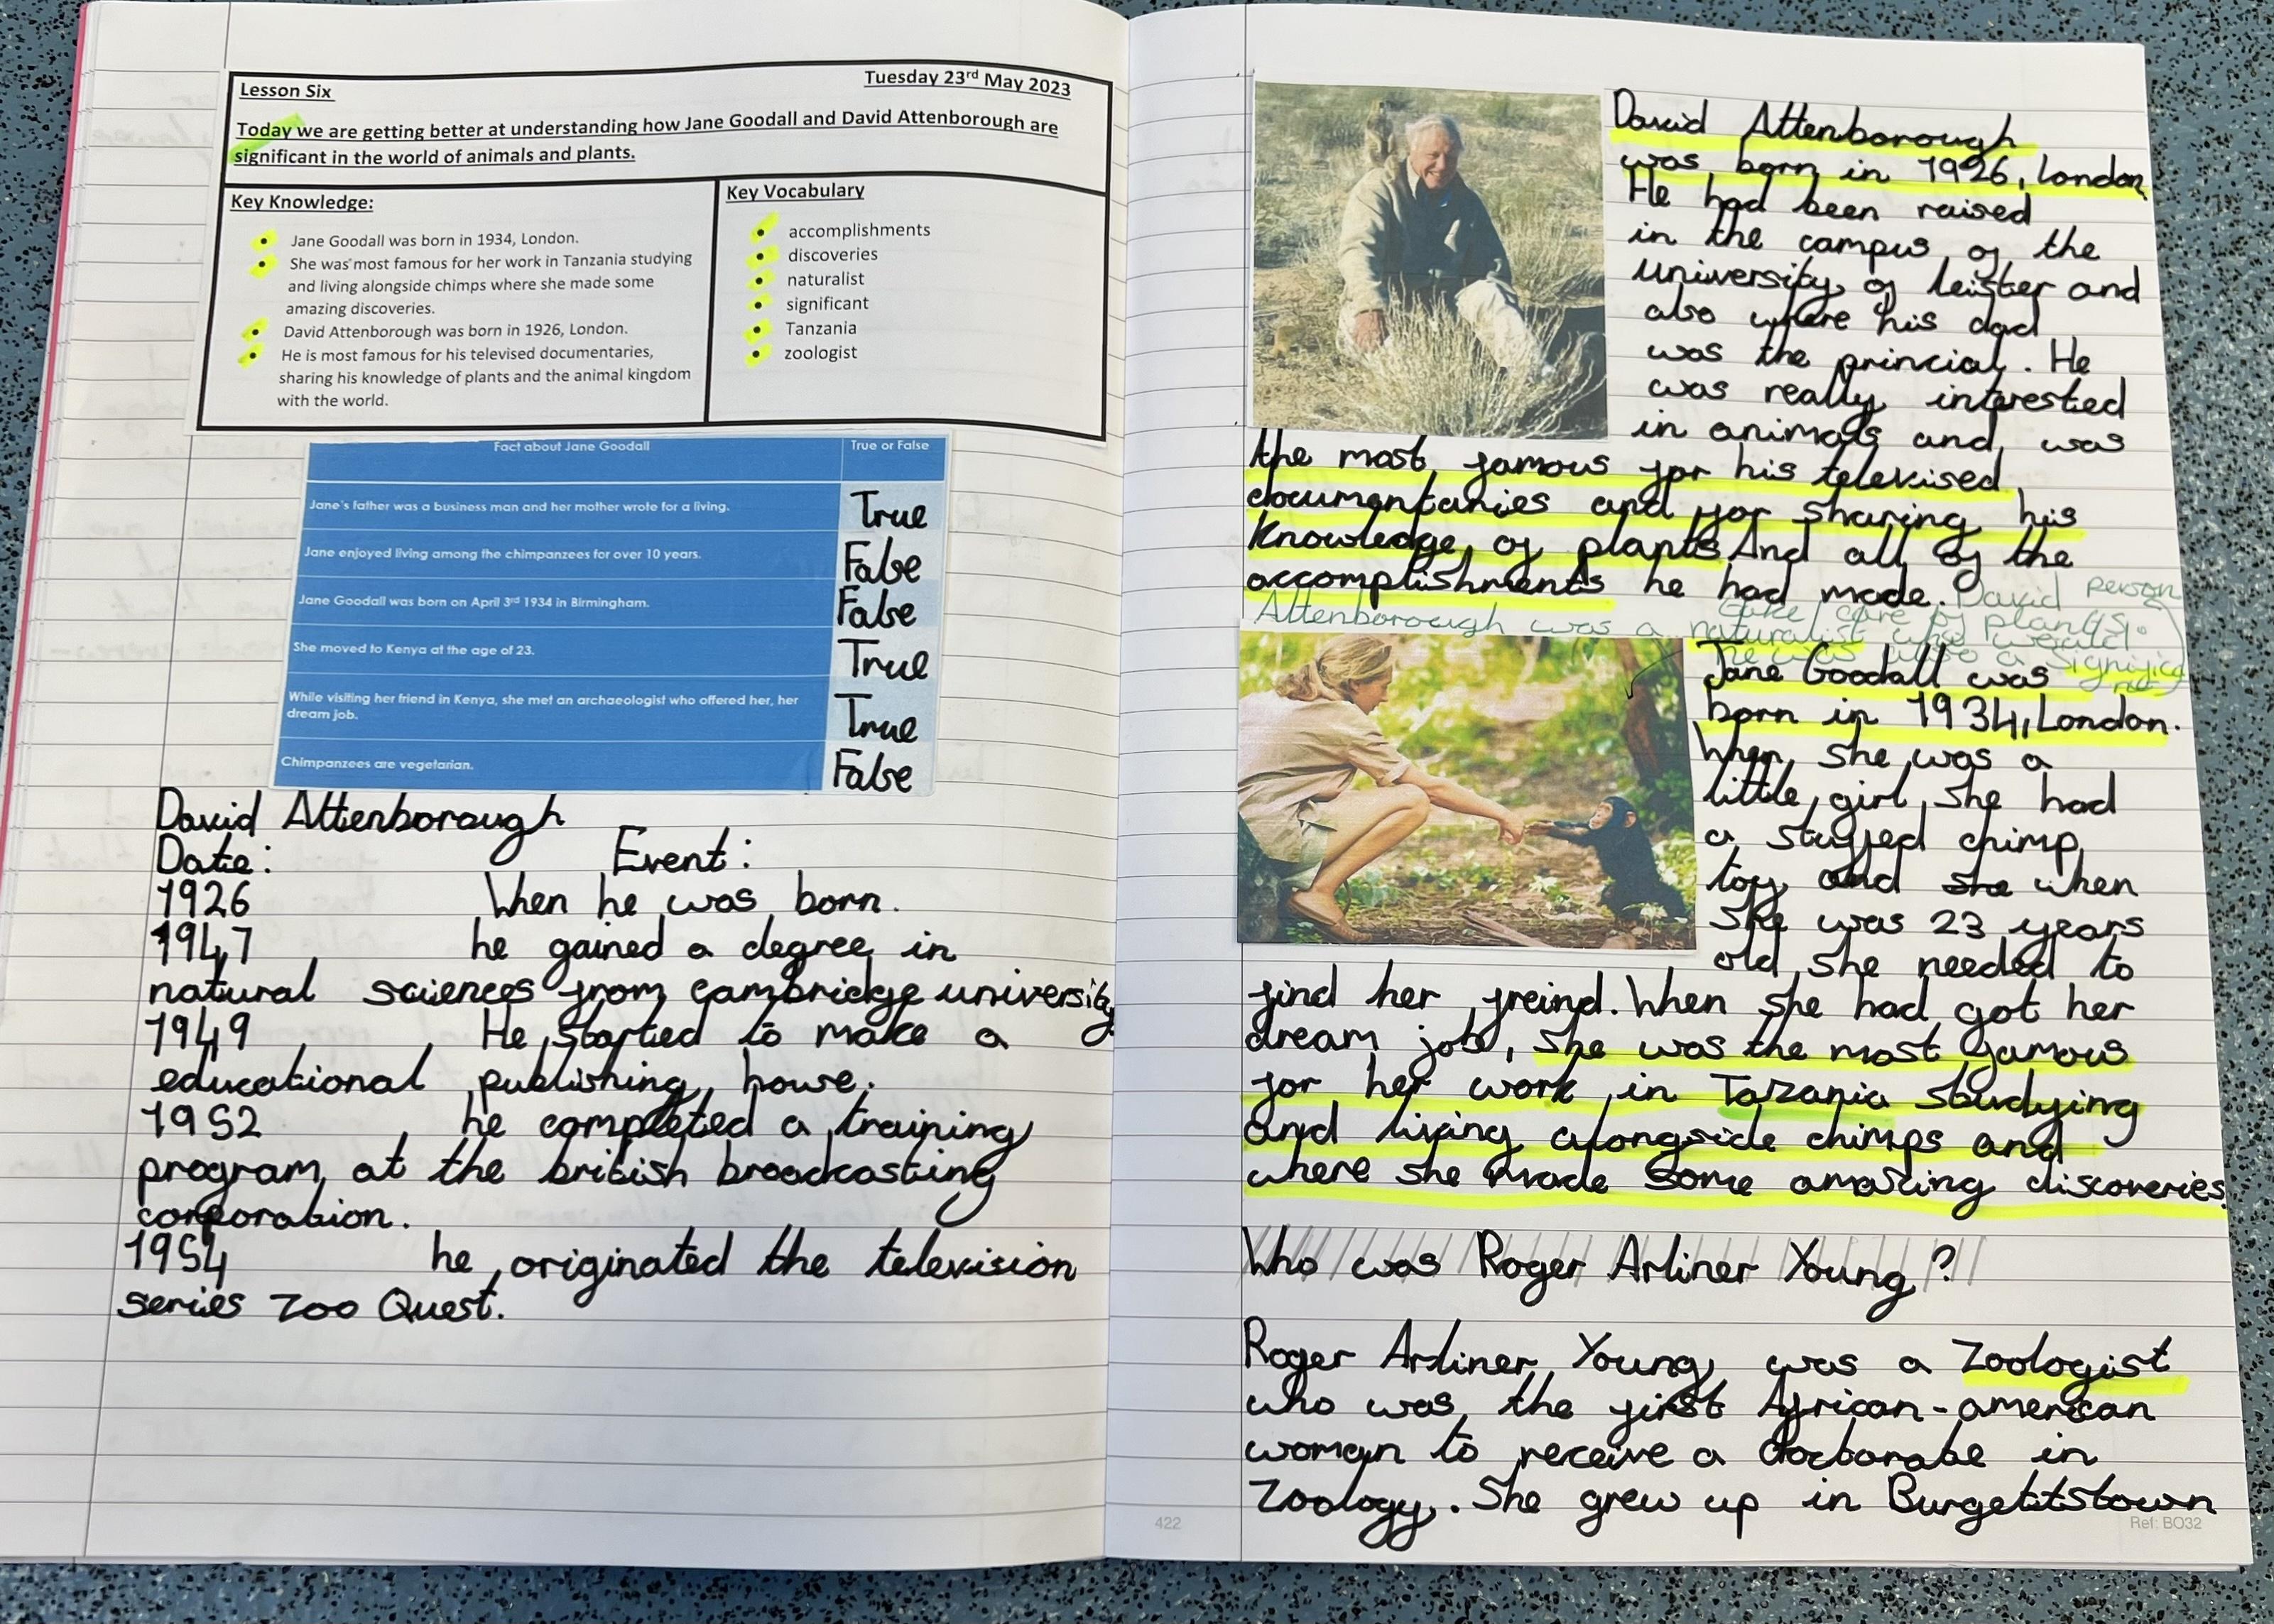 Lesson Six
Tuesday 23rd May 2023
Today we are getting better at understanding how Jane Goodall and David Attenborough are
significant in the world of animals and plants.
Key Knowledge:
• Jane Goodall was born in 1934, London.
• She was most famous for her work in Tanzania studying
and living alongside chimps where she made some
amazing discoveries.
• David Attenborough was born in 1926, London.
• He is most famous for his televised documentaries,
sharing his knowledge of plants and the animal kingdom
with the world.
Key Vocabulary
• accomplishments
• discoveries
• naturalist
• significant
• Tanzania
• zoologist
Fact about Jane Goodall True or False
Jane's father was a business man and her mother wrote for a living. True
Jane enjoyed living among the chimpanzees for over 10 years. False
Jane Goodall was born on April 3rd 1934 in Birmingham. False
She moved to Kenya at the age of 23. True
While visiting her friend in Kenya, she met an archaeologist who offered her, her
dream job. True
Chimpanzees are vegetarian. False
David Attenborough
Date: Event:
1926 When he was born.
1947 he gained a degree in
natural sciences from cambridge university
1949 He started to make a
educational publishing house.
1952 he completed a training
program at the british broadcasting
corporation.
1954 he originated the television
series Zoo Quest.
David Attenborough
was born in 1926, London
He had been raised
in the campus of the
university of leister and
also where his dad
was the princial. He
was really interested
in animals and was
the most famous for his televised
documentaries and for sharing his
Knowledge of plants And all of the
accomplishments he had made. David
Attenborough was a naturalist who would
take care of plants.
he was also a significant
person
Jane Goodall was
born in 1934, London.
When she was a
little girl she had
a stuffed chimp
toy and she when
she was 23 years
old she needed to
find her freind. When she had got her
dream job, she was the most famous
for her work in Tazania studying
and living alongside chimps and
where she made some amazing discoveries
Who was Roger Arliner Young?
Roger Arliner Young was a Zoologist
who was the first African-american
woman to receive a doctorate in
Zoology. She grew up in Burgettstown
422
Ref: BO32